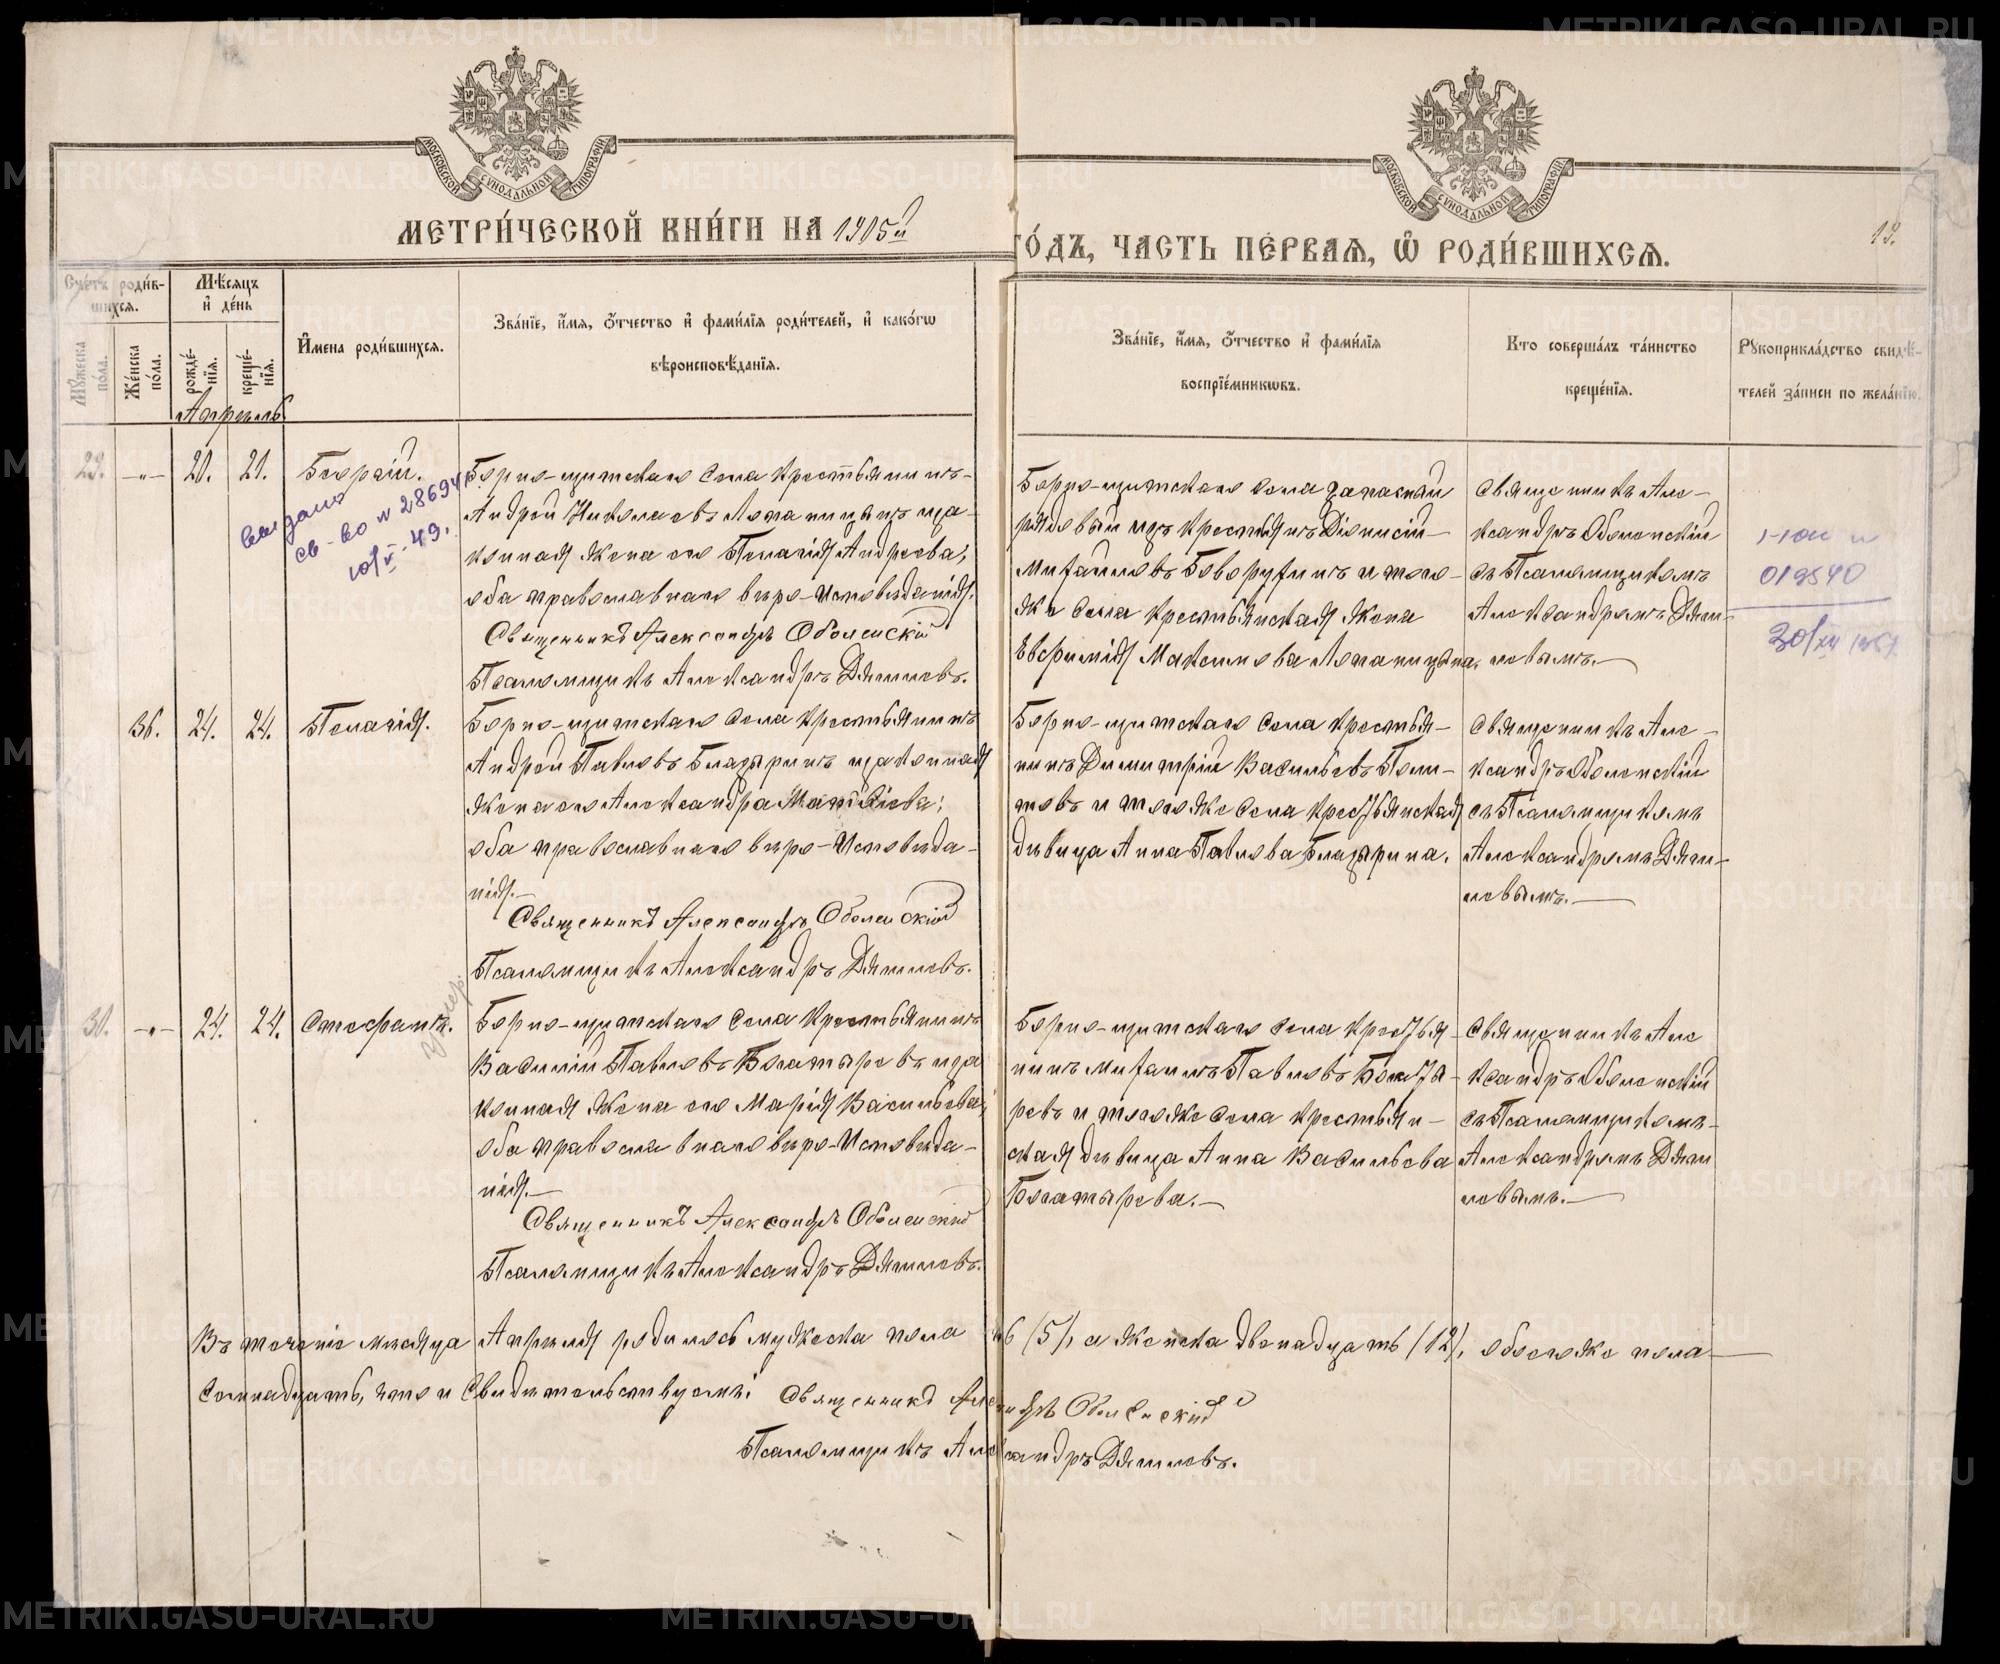 МЕТРИ́ЧЕСКОЙ КНИ́ГИ НА 1905й
ГО́ДЪ, ЧАСТЬ ПЕ́РВАЯ, Ѿ РОДИ́ВШИХСЯ.
МОСКОВСКОЙ СѴНОДАЛЬНОЙ ТИПОГРАФІИ
МОСКОВСКОЙ СѴНОДАЛЬНОЙ ТИПОГРАФІИ
Сче́тъ роди́в-
шихся.
Мѣ́сяцъ
и҆ де́нь
Му́жеска
по́ла.
Же́нска
по́ла.
рожде́-
нїя.
креще́-
нїя.
И҆мена роди́вшихся.
Зва́нїе, и҆́мя, ѻ҆́тчество и҆ фами́лїя роди́телей, и҆ како́гѡ
вѣроисповѣ́данїя.
Зва́нїе, и҆́мя, ѻ҆́тчество и҆ фами́лїя
воспрїе́мникѡвъ.
Кто соверша́лъ та́инство
креще́нїя.
Рукоприкла́дство свидѣ́-
телей за́писи по жела́нїю.
Апрѣль
29. -"- 20. 21. Георгій.
выдано
св-во № 286941
10/V-49.
Горно-щитскаго села крестьянинъ
Андрей Николаевъ Лопаницынъ за-
конная жена его Пелагія Андреева;
оба православнаго вѣро-исповѣданія.
Священникъ Александръ Оболенскій
Псаломщикъ Александръ Дягилевъ.
Горно-щитскаго села запасный
рядовый изъ крестьянъ Діонисій
Михаиловъ Беворухинъ и того-
же села крестьянская жена
Евфимія Максимова Лопаницына.
Священникъ Але-
ксандръ Оболенскій
съ Псаломщикомъ
Александромъ Дяги-
левымъ.
019540
36. 24. 24. Пелагія.
Горно-щитскаго села крестьянинъ
Андрей Павловъ Глазыринъ законная
жена его Александра Матѳіева;
оба православнаго вѣро-исповѣда-
нія.
Священникъ Александръ Оболенскій
Псаломщикъ Александръ Дягилевъ.
Горно-щитскаго села крестья-
нинъ Димитрій Васильевъ Поли-
товъ и того же села крестьянская
дѣвица Анна Павлова Глазырина.
Священникъ Але-
ксандръ Оболенскій
съ Псаломщикомъ
Александромъ Дяги-
левымъ.
30. -"- 24. 24. Стефанъ.
умер
Горно-щитскаго села крестьянинъ
Василій Павловъ Богатыревъ за
конная жена его Марія Васильева;
оба православнаго вѣро-исповѣда-
нія.
Священникъ Александръ Оболенскій
Псаломщикъ Александръ Дягилевъ.
Горно-щитскаго села крестья-
нинъ Михаилъ Павловъ Богаты-
ревъ и того же села крестьян-
ская дѣвица Анна Васильева
Богатырева.
Священникъ Але
ксандръ Оболенскій
съ Псаломщикомъ
Александромъ Дяги
левымъ.
Въ теченіе мѣсяца Апрѣля родилось мужеска пола (5), а женска двенадцать (12), обоего же пола
семнадцать, что и свидѣтельствуемъ: Священникъ Александръ Оболенскій
Псаломщикъ Александръ Дягилевъ.